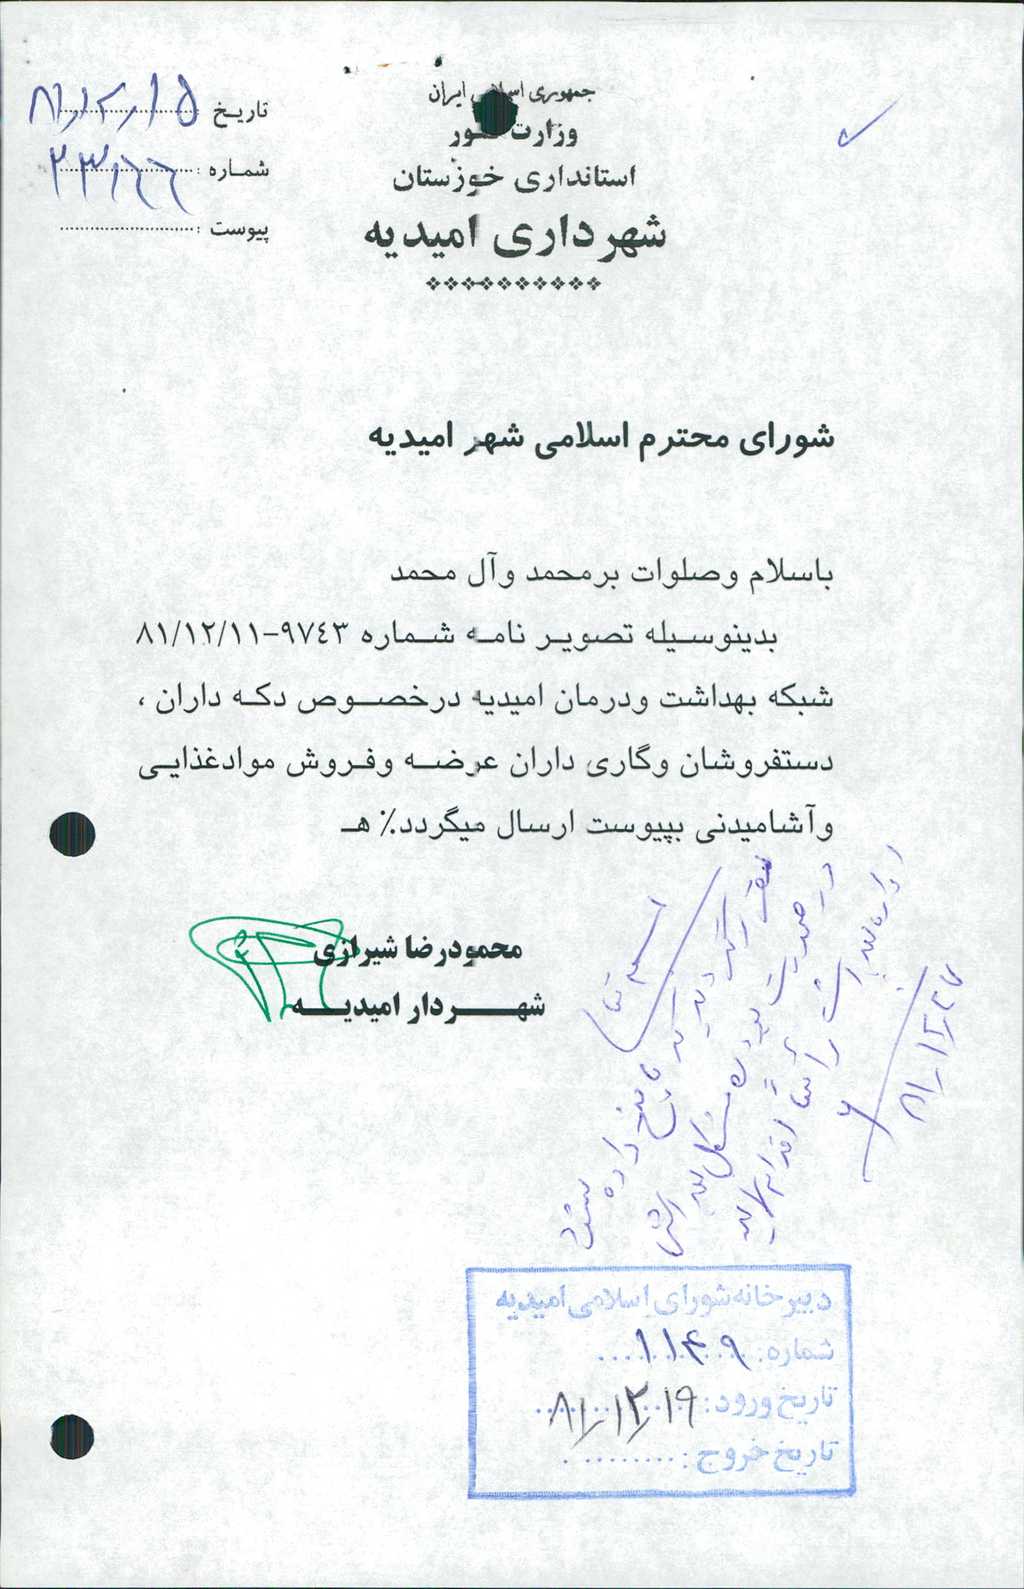 جمهوری اسلامی ایران
وزارت کشور
استانداری خوزستان
شهرداری امیدیه
تاریخ ۸۱/۱۲/۱۵
شماره : ۲۳۱۶۶
پیوست :
شورای محترم اسلامی شهر امیدیه
باسلام وصلوات برمحمد وآل محمد
بدینوسیله تصویر نامه شماره ۹۷۴۳-۸۱/۱۲/۱۱
شبکه بهداشت ودرمان امیدیه درخصوص دکه داران ،
دستفروشان وگاری داران عرضه وفروش موادغذایی
وآشامیدنی بپیوست ارسال میگردد٪ هـ
محمودرضا شیرازی
شهردار امیدیه
در صورت بودن مشکل
پاسخ داده شود
دبیرخانه شورای اسلامی امیدیه
شماره: ۱۱۴۹
تاریخ ورود: ۸۱/۱۲/۱۹
تاریخ خروج: